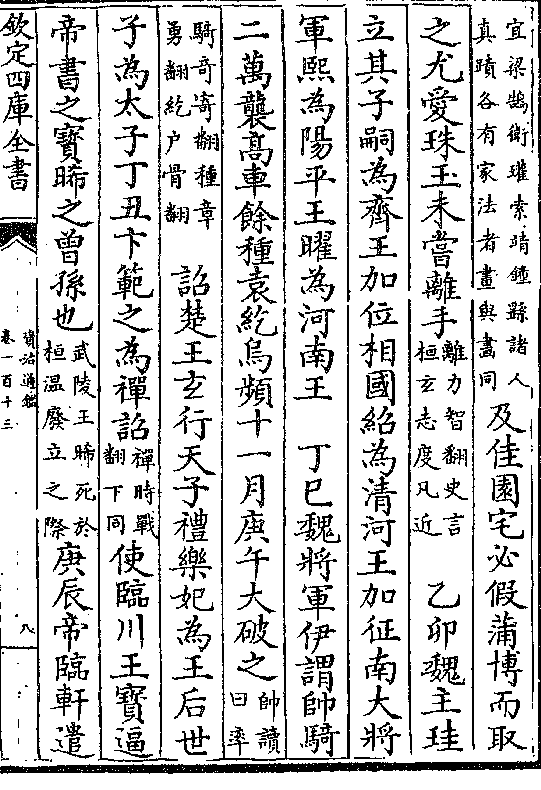 宜梁鵠衛瓘索靖鍾繇諸人
真蹟各有家法者畫與畫同
及佳園宅必假蒲博而取
之尤愛珠玉未嘗離手
離力智翻史言
桓玄志度凡近
乙卯魏主珪
立其子嗣為齊王加位相國紹為清河王加征南大將
軍熙為陽平王曜為河南王　丁巳魏將軍伊謂帥騎
二萬襲髙車餘種袁紇烏頻十一月庚午大破之
帥讀
曰率
騎竒寄翻種章
勇翻紇户骨翻
詔楚王玄行天子禮樂妃為王后世
子為太子丁丑卞範之為禪詔
禪時戰
翻下同
使臨川王寳逼
帝書之寳晞之曾孫也
武陵王晞死於
桓温廢立之際
庚辰帝臨軒遣
欽定四庫全書
資治通鑑
卷一百十三
八